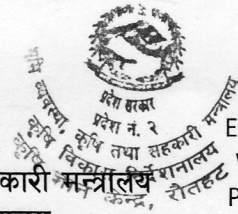 प्रदेश सरकार
प्रदेश नं. २
भूमि व्यवस्था, कृषि तथा सहकारी मन्त्रालय
कृषि विकास निर्देशनालय
कृषि ज्ञान केन्द्र, रौतहट
कारी मन्त्रालय
E
P